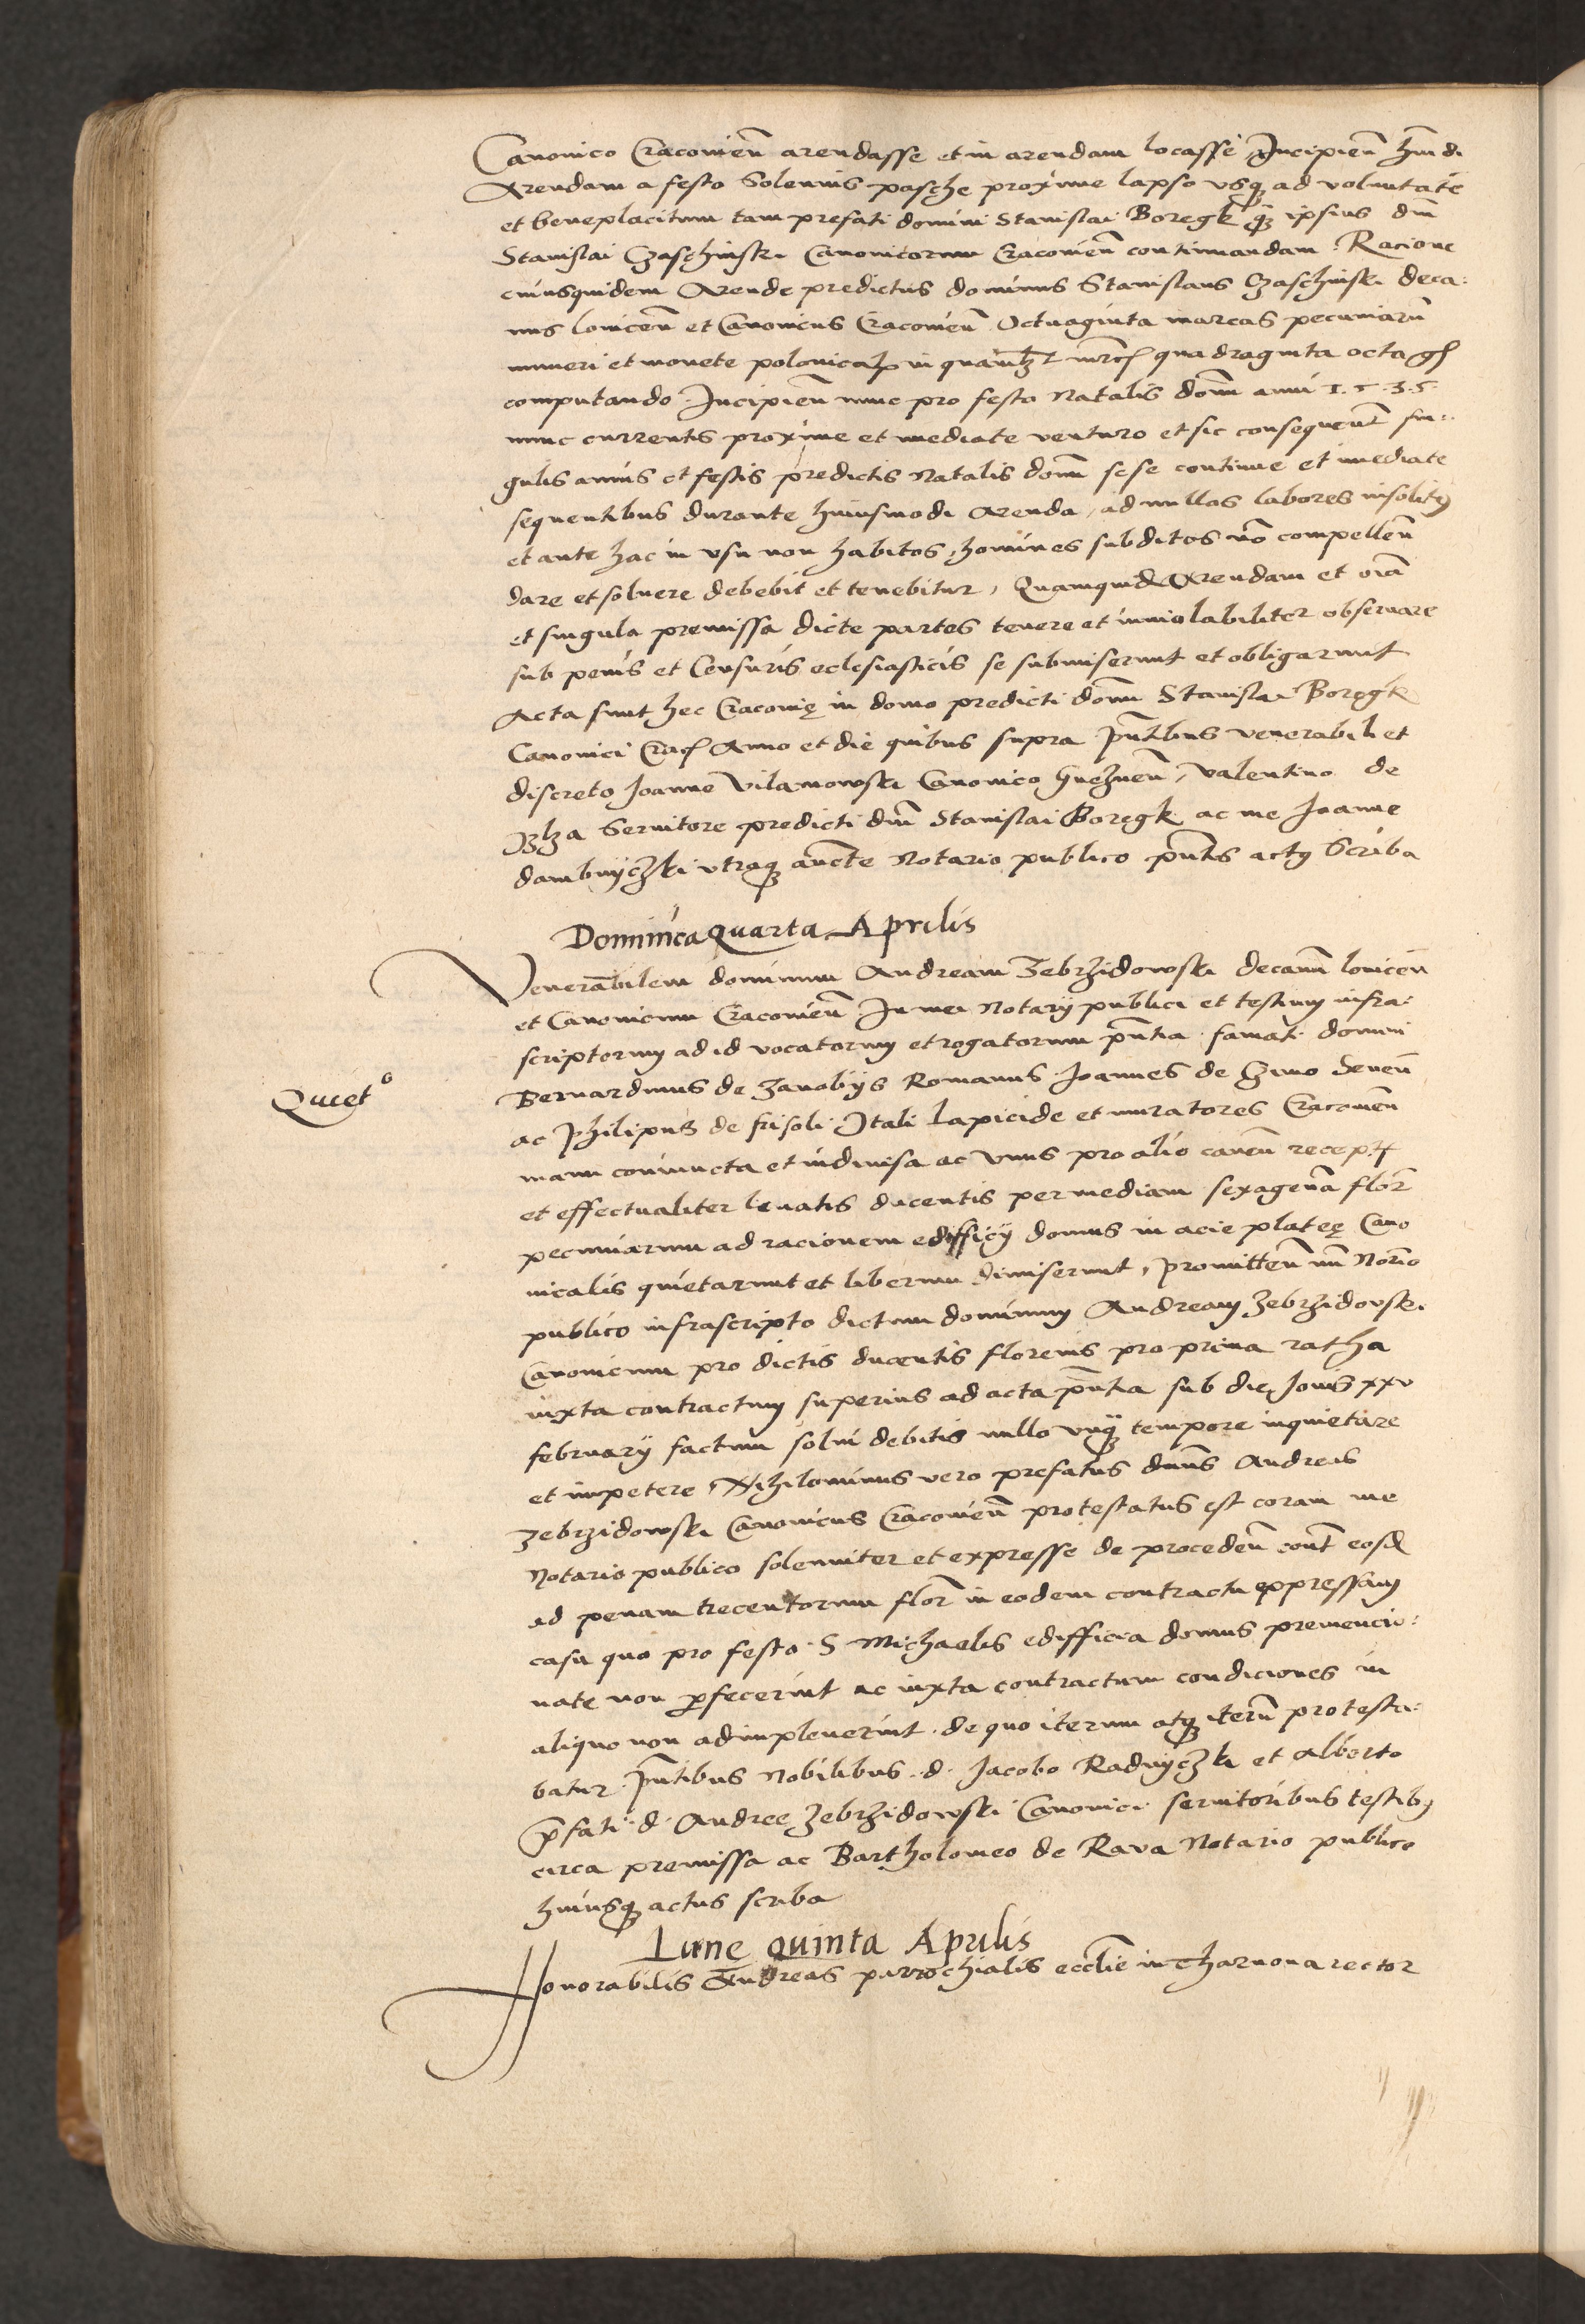 Canonico Cracovien̄ arendasse et in arendam locasse Incipien̄ hm̄di
Arendam a festo Solennis pasche proxime lapso vsq₃ ad voluntatē
et beneplacitum tam prefati domini Stanislai Boregk q̄₃ ipsius dn̄i
Stanislai Czaschinski Canonicorum Cracovien̄ continuandam. Racione
cuiusquidem Arende predictus dominus Stanislaus Czaschinski deca:
nus lovicen̄ et Canonicus Cracovien̄ Octuaginta marcas pecuniarū
numeri et monete polonical̄ in quamlz̄ mrc̄ quadraginta octo gr̄
computando. Incipien̄ nunc pro festo Natalis dom̄ anni 1.5.3.5.
nunc currentis proxime et mediate venturo et sic consequent̄ sin:
gulis annis et festis predictis Natalis dom̄ sese continue et imediate
sequentibus durante huiusmodi Arenda, ad nullos labores insolitꝰ
et ante hac in vsu non habitos, homines subditos nō compellen̄
dare et solvere debebit et tenebitur, Quamquid̄ Arendam et oīa
et singula premissa dicte partes tenere et inviolabiliter observare
sub penis et Censuris eclesiasticis se submiserunt et obligarunt
Acta sunt hec Cracovię in domo predicti dom̄ Stanislai Boregk
Canonici Crac̄ Anno et die quibus supra p̄ntibus venerabili et
discreto Joanne Vilamowski Canonico Gneznen̄, Valentino de
Ilza Servitore predicti dn̄i Stanislai Boregk ac me Joanne
dambnyczki vtraq₃ auc̄te Notario publico p̄ntis actꝰ Scriba
Dominica Quarta Aprilis
Venerabilem dominum Andream Zebrzidowski decanū lovicen̄
et Canonicum Cracovien̄ In mei Notarÿ publici et testium infra:
scriptorum ad id vocatorum et rogatorum p̄ntia. famati domini
Quiet⁰
Bernardinus de Zanobÿs Romanus Joannes de Cino Senen̄
ac Philipus de frisoli Itali lapicide et muratores Cracovien̄
manu coniuncta et indivisa ac vnus pro alio caven̄ receptꝭ
et effectualiter levatis ducentis per mediam sexagenā flor̄
pecuniarum ad racionem edifficÿ domus in acie plateę Cano
nicalis quietarunt et liberum dimiserunt, promitten̄ m̄ Nor̄io
publico infrascripto dictum dominum Andream Zebrzidovski
Canonicum pro dictis ducentis florenis pro prima ratha
iuxta contractum superius ad acta p̄ntia sub die Jovis xxv
februarÿ factum solvi debitis nullo vnq̄₃ tempore inquietare
et impetere, Nihilominus vero prefatus dn̄s Andreas
Zebrzidowski Canonicus Cracovien̄ protestatus est coram me
Notario publico solenniter et expresse de proceden̄ cont̄ eosd̄
ad penam trecentorum flor̄ in eodem contractu expressam
casu quo pro festo S Michaelis edifficia domus premencio:
nate non ꝑfecerint ac iuxta contractum condiciones in
aliquo non adimpleverint. de quo iterum atq₃ iterū protesta:
batur. p̄ntibus Nobilibus .d. Jacobo Radnyczki et Alberto
p̄fati .d. Andree Zebrzidowski Canonici servitoribus testibꝰ
circa premissa ac Bartholomeo de Rava Notario publico
huiusq₃ actus scriba
Lune quinta Aprilis
Honorabilis Andreas parrochialis ecclie in Tharnova rector